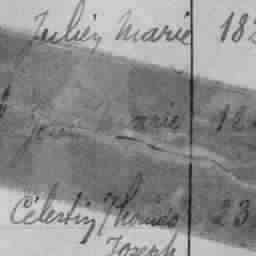 Julien Marie 182
Marie 18
Célestin Thomas 23
Joseph